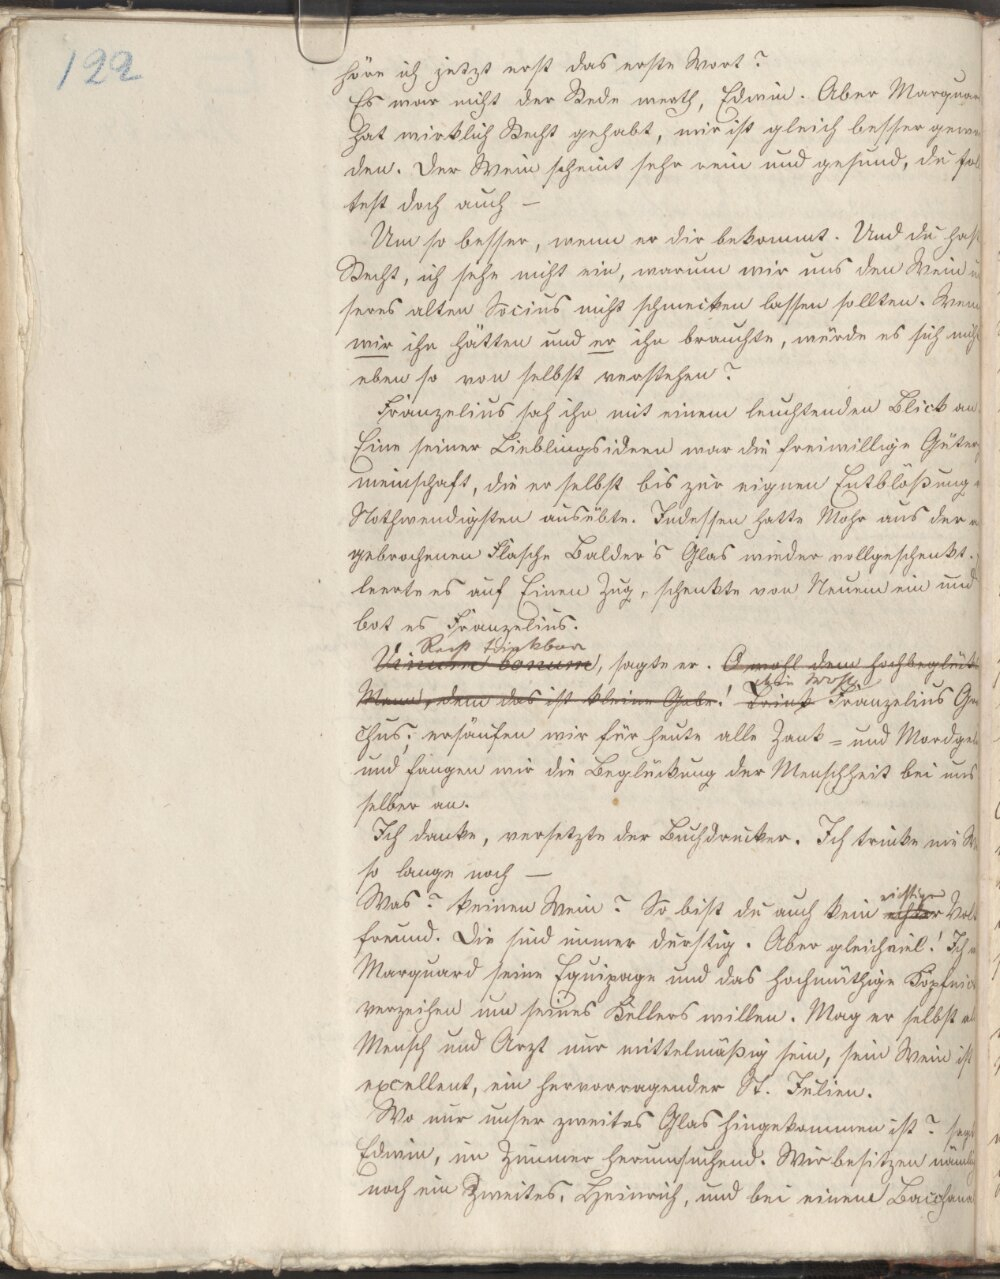 122
höre ich jetzt erst das erste Wort?
Es war nicht der Rede werth, Edwin. Aber Marquar
hat wirklich Recht gehabt, mir ist gleich besser gewor
den. Der Wein scheint sehr rein und gesund, du soll
test doch auch —
Um so besser, wenn er dir bekommt. Und du hast
Recht, ich sehe nicht ein, warum wir uns den Wein un
seres alten Socius nicht schmecken lassen sollten. Wenn
wir ihn hätten und er ihn brauchte, würde es sich nicht
eben so von selbst verstehen?
Franzelius sah ihn mit einem leuchtenden Blick an.
Eine seiner Lieblingsideen war die freiwillige Güter
meinschaft, die er selbst bis zur eignen Entblößung
Nothwendigsten ausübte. Indessen hatte Mohr aus der
gebrochenen Flasche Balder's Glas wieder vollgeschenkt.
leerte es auf Einen Zug, schenkte von Neuem ein und
bot es Franzelius.
Recht trinkbar
Vinum bonum, sagte er. O wohl dem hochbeglückt
Dein Wohl
Mann, dem das ist kleine Gabe! Trink Franzelius Gra
chus; ersäufen wir für heute alle Zank- und Mordge
und fangen wir die Beglückung der Menschheit bei uns
selber an.
Ich danke, versetzte der Buchdrucker. Ich trinke nie We
so lange noch —
richtiger
Was? keinen Wein? So bist du auch kein echter Volk
freund. Die sind immer durstig. Aber gleichviel! Ich
Marquard seine Equipage und das hochmüthige Kopfnic
verzeihen um seines Kellers willen. Mag er selbst al
Mensch und Arzt nur mittelmäßig sein, sein Wein ist
excellent, ein hervorragender St. Julien.
Wo nur unser zweites Glas hingekommen ist? sagt
Edwin, im Zimmer herumsuchend. Wir besitzen nämlich
noch ein Zweites, Heinrich, und bei einem Bacchana